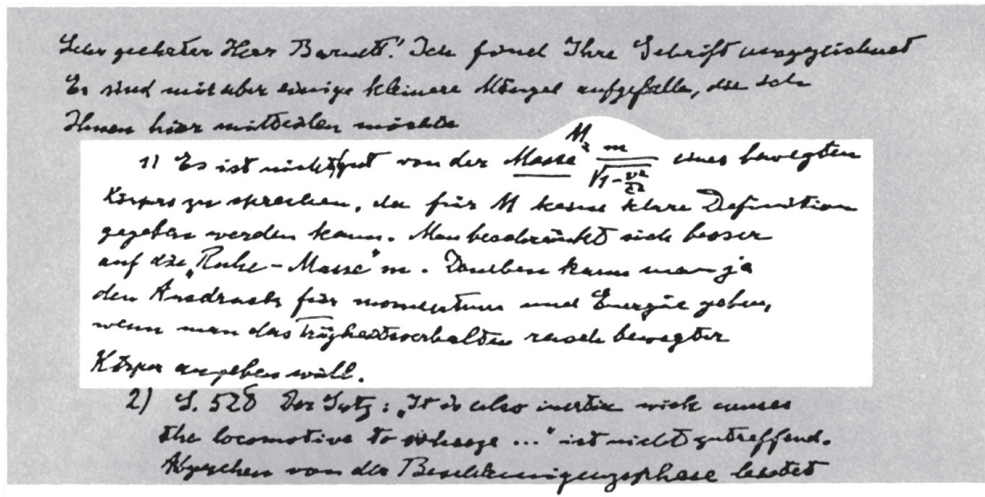 Sehr geehrter Herr Barnett! Ich fand Ihre Schrift ausgezeichnet
Es sind mir aber einige kleinere Mängel aufgefallen, die ich
Ihnen hier mitteilen möchte
1) Es ist nicht gut von der Masse M = m/√(1-v²/c²) eines bewegten
Körpers zu sprechen, da für M keine klare Definition
gegeben werden kann. Man beschränkt sich besser
auf die „Ruhe-Masse" m. Daneben kann man ja
den Ausdruck für momentum und Energie geben,
wenn man das Trägheitsverhalten rasch bewegter
Körper angeben will.
2) S. 528 Der Satz: „It is also inertia wich causes
the locomotive to ..." ist nicht zutreffend.
Abgesehen von der Beschleunigungsphase leistet